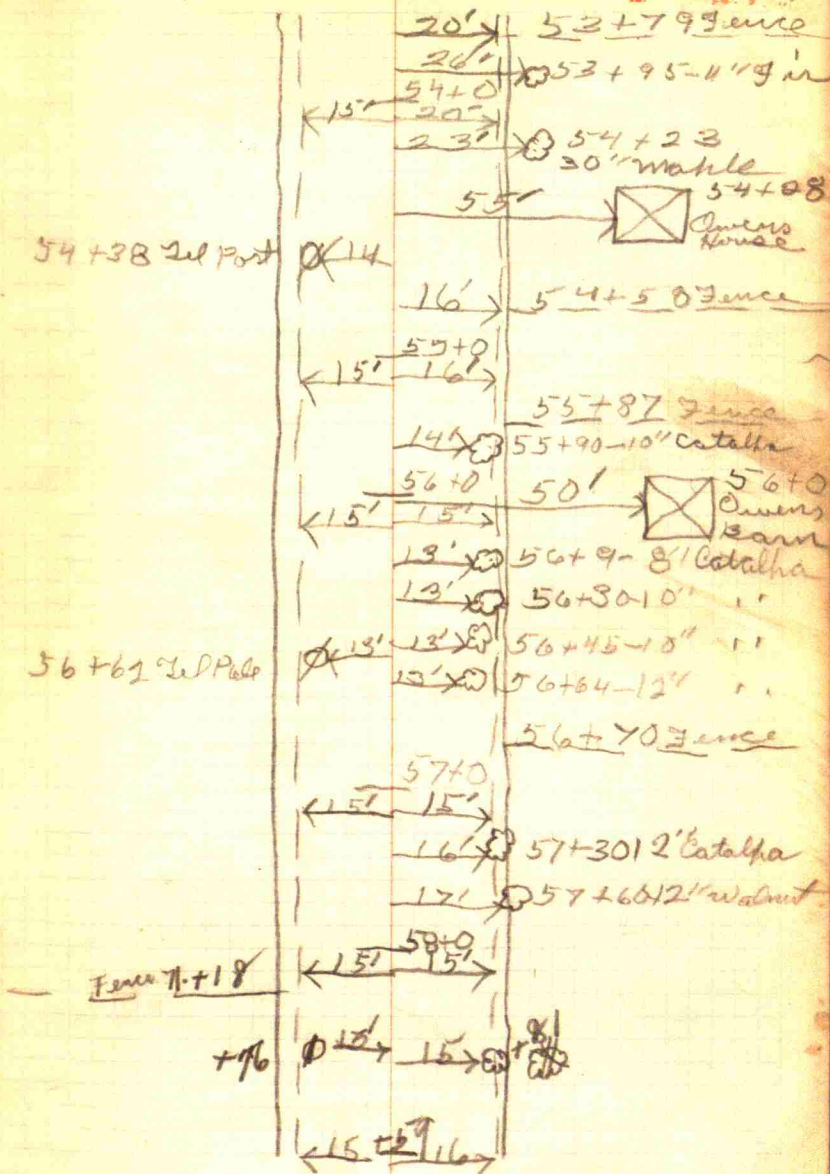 20' 53+79 Fence
26' 53+95-11" Fir
54+0
15' 20'
23' 54+23
30" Maple
55' 54+28
Owens
House
54+38 Tel Post 14
16' 54+58 Fence
55+0
15' 16'
55+87 Fence
14' 55+90-10" Catalpa
56+0 50' 56+0
Owens
Barn
15' 15'
13' 56+9-8" Catalpa
13' 56+30-10" "
13' 13' 56+45-10" "
56+62 Tel Pole
13' 56+64-12" "
56+70 Fence
57+0
15' 15'
16' 57+30 12" Catalpa
17' 57+60 12" Walnut
58+0
15' 15'
Fence +18
+76 15' 15 +81
15 16